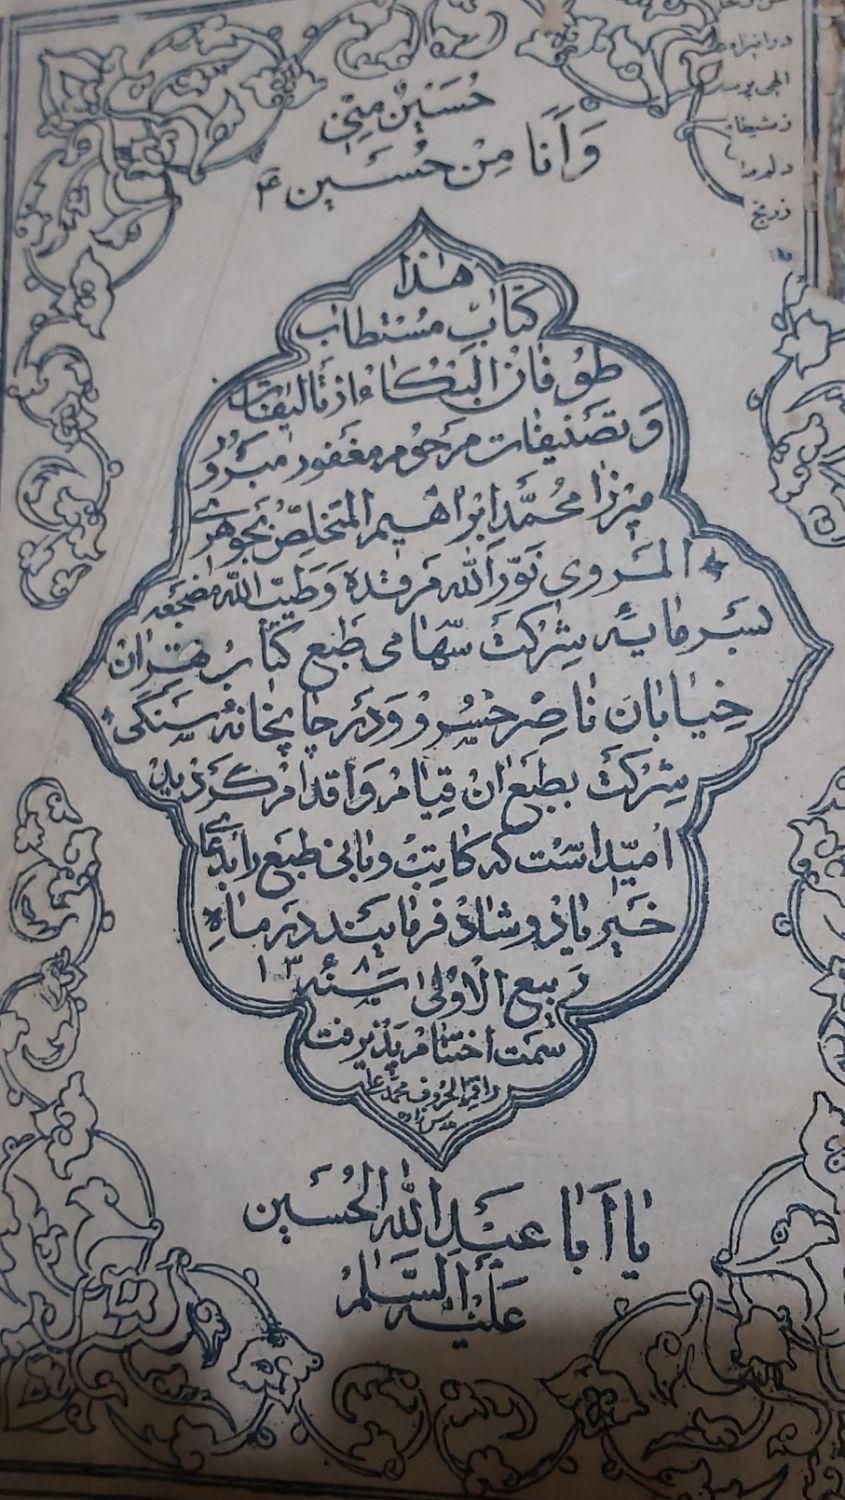 حُسَينٌ مِنّی
وَاَنَا مِنْ حُسَین
هٰذا
کتابِ مُسْتطاب
طوفانُ البُکاء از تالیفات
وَ تصنیفات مرحوم مغفور مبرور
میرزا محمّد ابراهیم المتخلّص بجوهری
المروی نَوَّرَ اللّه مَرقده وَ طَیَّبَ اللّه مضجعه
بسرمایه شرکت سهامی طبع کتاب تهران
خیابان ناصر خسرو و در چاپخانه سنگی
شرکت بطبع ان قیام و اقدام گردید
امید است که کاتب و بانی طبع را بدعای
خیر یاد و شاد فرمایند در ماه
ربیع الاولی سَنَه ۱۳۸
سمت اختتام پذیرفت
راقم الحروف محمد علی
یا اَبا عَبدِ اللّٰه الحُسَین
عَلَیْهِ السَّلٰام
در انبراه
ایلچی